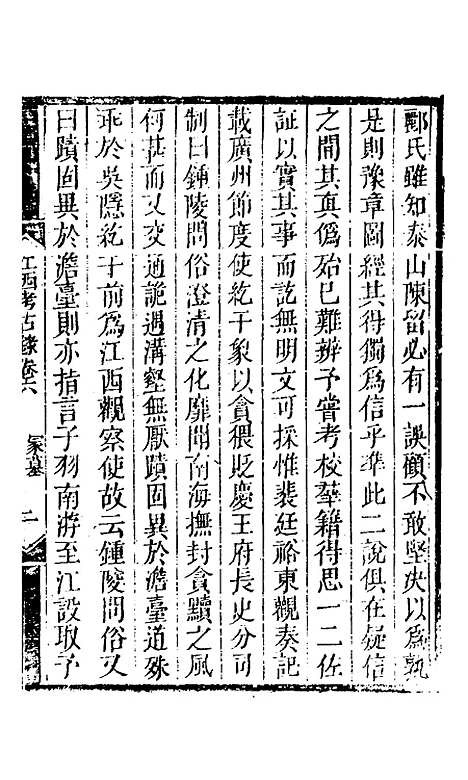 酈氏雖知泰山陳留必有一誤顧不敢堅決以爲孰
是則豫章圖經其得獨爲信乎準此二說俱在疑信
之間其真僞殆已難辨予嘗考校羣籍得思一二佐
証以實其事而訖無明文可採惟裴廷裕東觀奏記
載廣州節度使紇干臮以貪猥貶慶王府長史分司
制曰鍾陵問俗澄清之化靡聞南海撫封貪黷之風
何甚而又交通詭遇溝壑無厭蹟固異於澹臺道殊
乖於吳隱紇干前爲江西觀察使故云鍾陵問俗又
曰蹟固異於澹臺則亦指言子羽南游至江設取予
江西考古錄卷六 冢墓 二